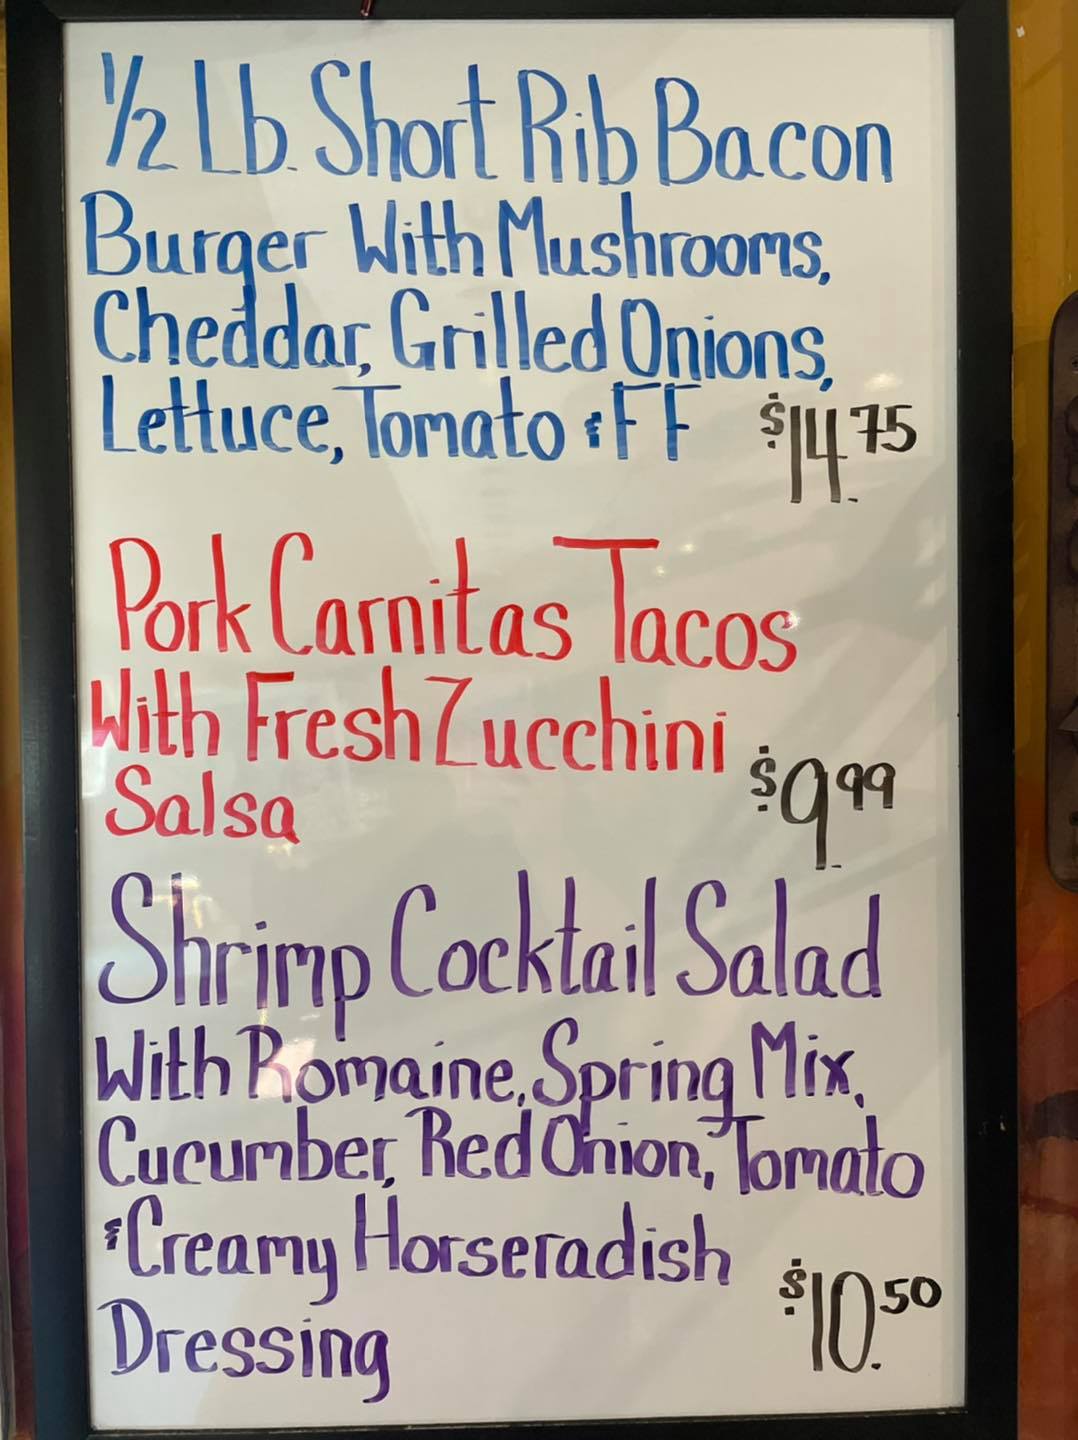 1/2 Lb. Short Rib Bacon
Burger With Mushrooms,
Cheddar, Grilled Onions,
Lettuce, Tomato & FF $14.75
Pork Carnitas Tacos
With Fresh Zucchini
Salsa $9.99
Shrimp Cocktail Salad
With Romaine, Spring Mix,
Cucumber, Red Onion, Tomato
& Creamy Horseradish
Dressing $10.50